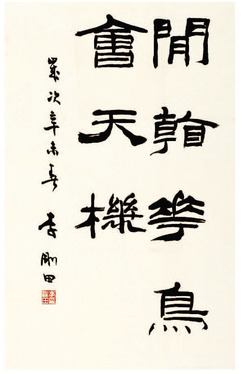 閒看華鳥
會天機
歲次辛未春 李剛田